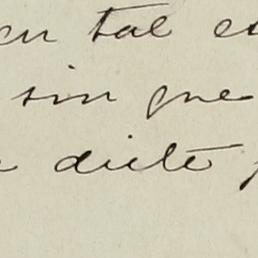 en tal
sin que
dicte